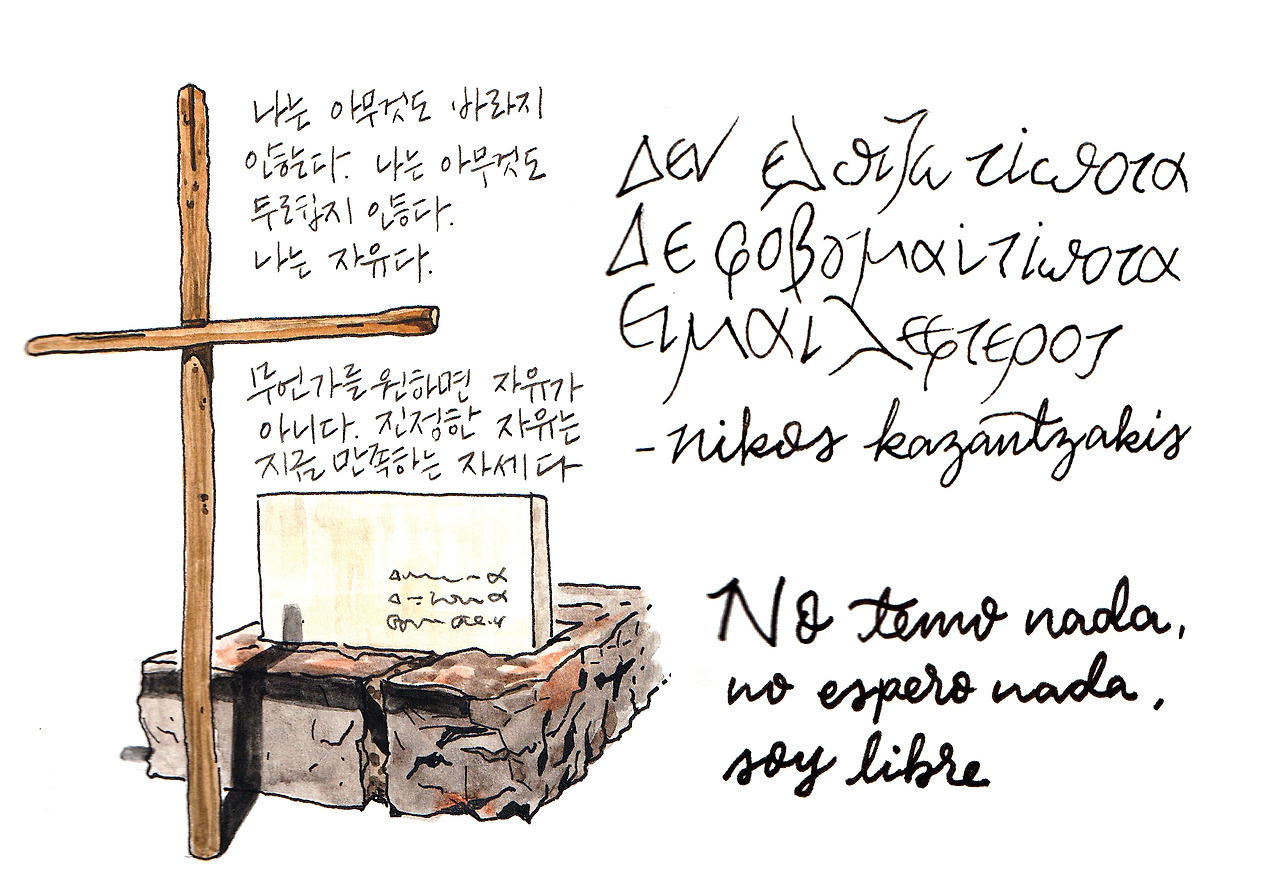 나는 아무것도 바라지
않는다. 나는 아무것도
두렵지 않다.
나는 자유다.
무언가를 원하면 자유가
아니다. 진정한 자유는
지금 만족하는 자세다
Δεν ελπίζω τίποτα
Δε φοβομαι τίποτα
Ειμαι λεφτερος
-nikos kazantzakis
No temo nada,
no espero nada,
soy libre